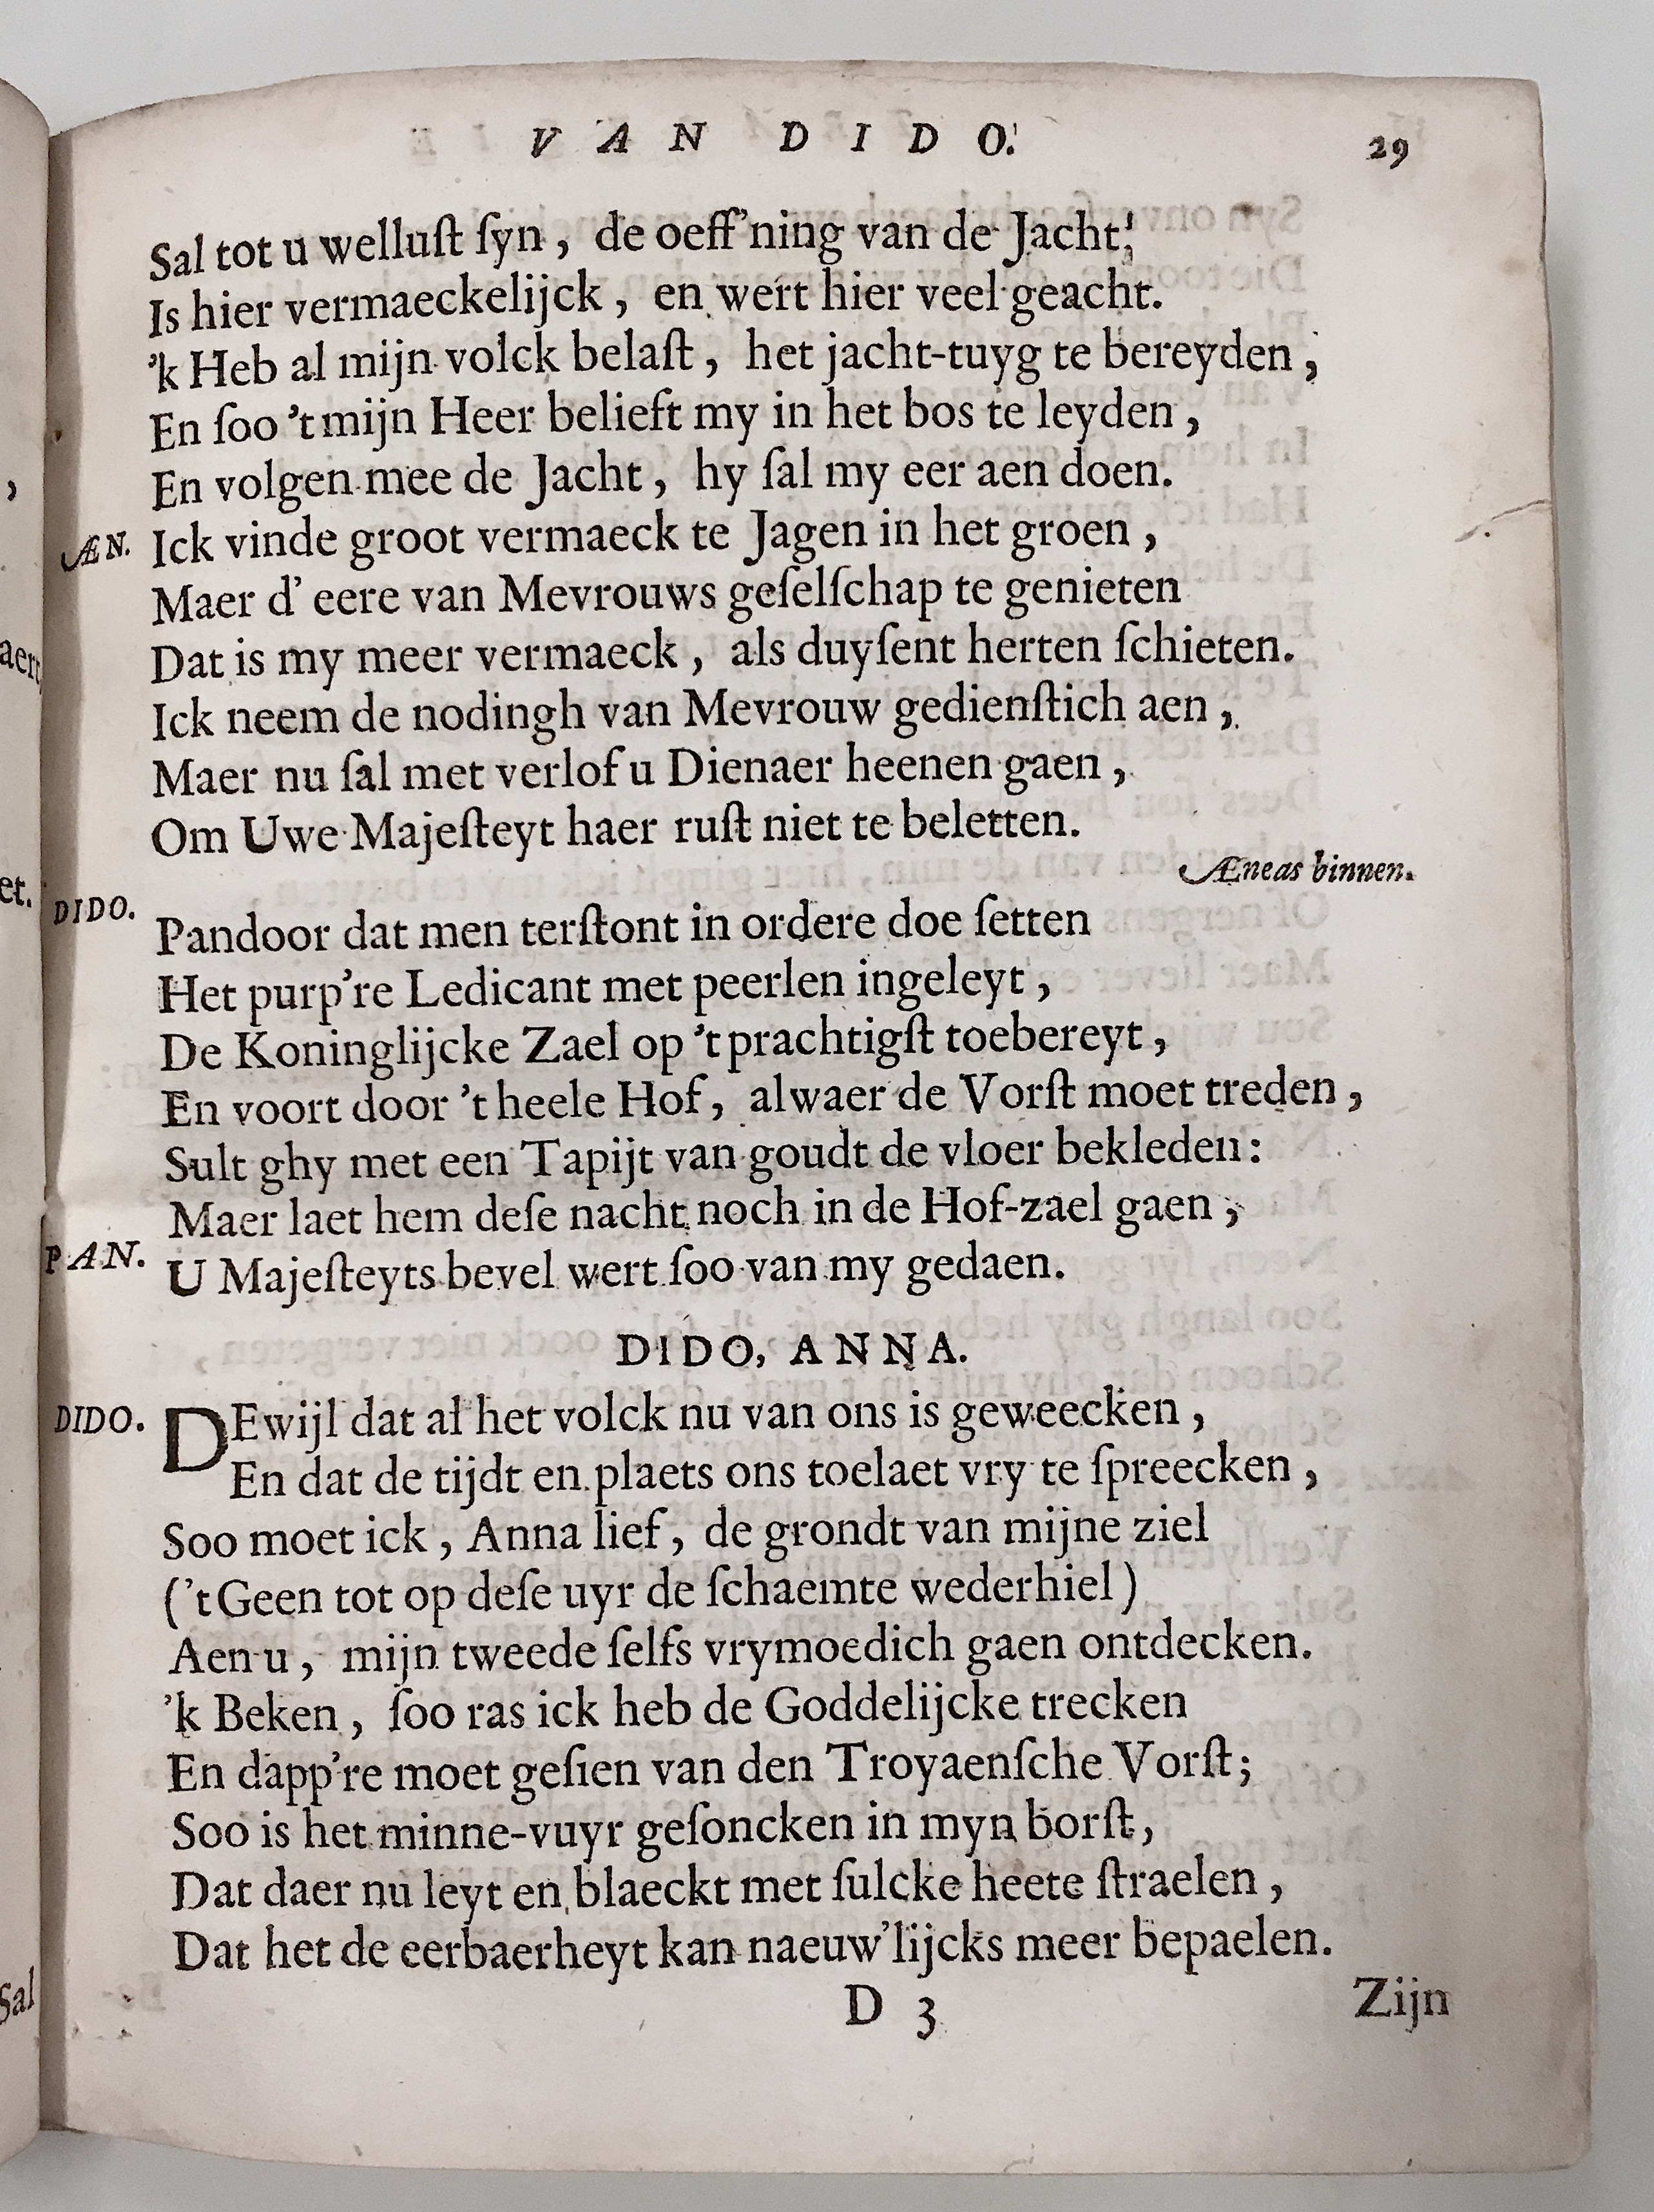 VAN DIDO. 29
Sal tot u welluſt ſyn, de oeff'ning van de Jacht;
Is hier vermaeckelijck, en wert hier veel geacht.
'k Heb al mijn volck belaſt, het jacht-tuyg te bereyden,
En ſoo 't mijn Heer belieft my in het bos te leyden,
En volgen mee de Jacht, hy ſal my eer aen doen.
ÆN. Ick vinde groot vermaeck te Jagen in het groen,
Maer d' eere van Mevrouws geſelſchap te genieten
Dat is my meer vermaeck, als duyſent herten ſchieten.
Ick neem de nodingh van Mevrouw gedienſtich aen,
Maer nu ſal met verlof u Dienaer heenen gaen,
Om Uwe Majeſteyt haer ruſt niet te beletten.
Æneas binnen.
DIDO. Pandoor dat men terſtont in ordere doe ſetten
Het purp're Ledicant met peerlen ingeleyt,
De Koninglijcke Zael op 't prachtigſt toebereyt,
En voort door 't heele Hof, alwaer de Vorſt moet treden,
Sult ghy met een Tapijt van goudt de vloer bekleden:
Maer laet hem deſe nacht noch in de Hof-zael gaen,
PAN. U Majeſteyts bevel wert ſoo van my gedaen.
DIDO, ANNA.
DIDO. DEwijl dat al het volck nu van ons is geweecken,
En dat de tijdt en plaets ons toelaet vry te ſpreecken,
Soo moet ick, Anna lief, de grondt van mijne ziel
('t Geen tot op deſe uyr de ſchaemte wederhiel)
Aen u, mijn tweede ſelfs vrymoedich gaen ontdecken.
'k Beken, ſoo ras ick heb de Goddelijcke trecken
En dapp're moet geſien van den Troyaenſche Vorſt;
Soo is het minne-vuyr geſoncken in myn borſt,
Dat daer nu leyt en blaeckt met ſulcke heete ſtraelen,
Dat het de eerbaerheyt kan naeuw'lijcks meer bepaelen.
D 3 Zijn